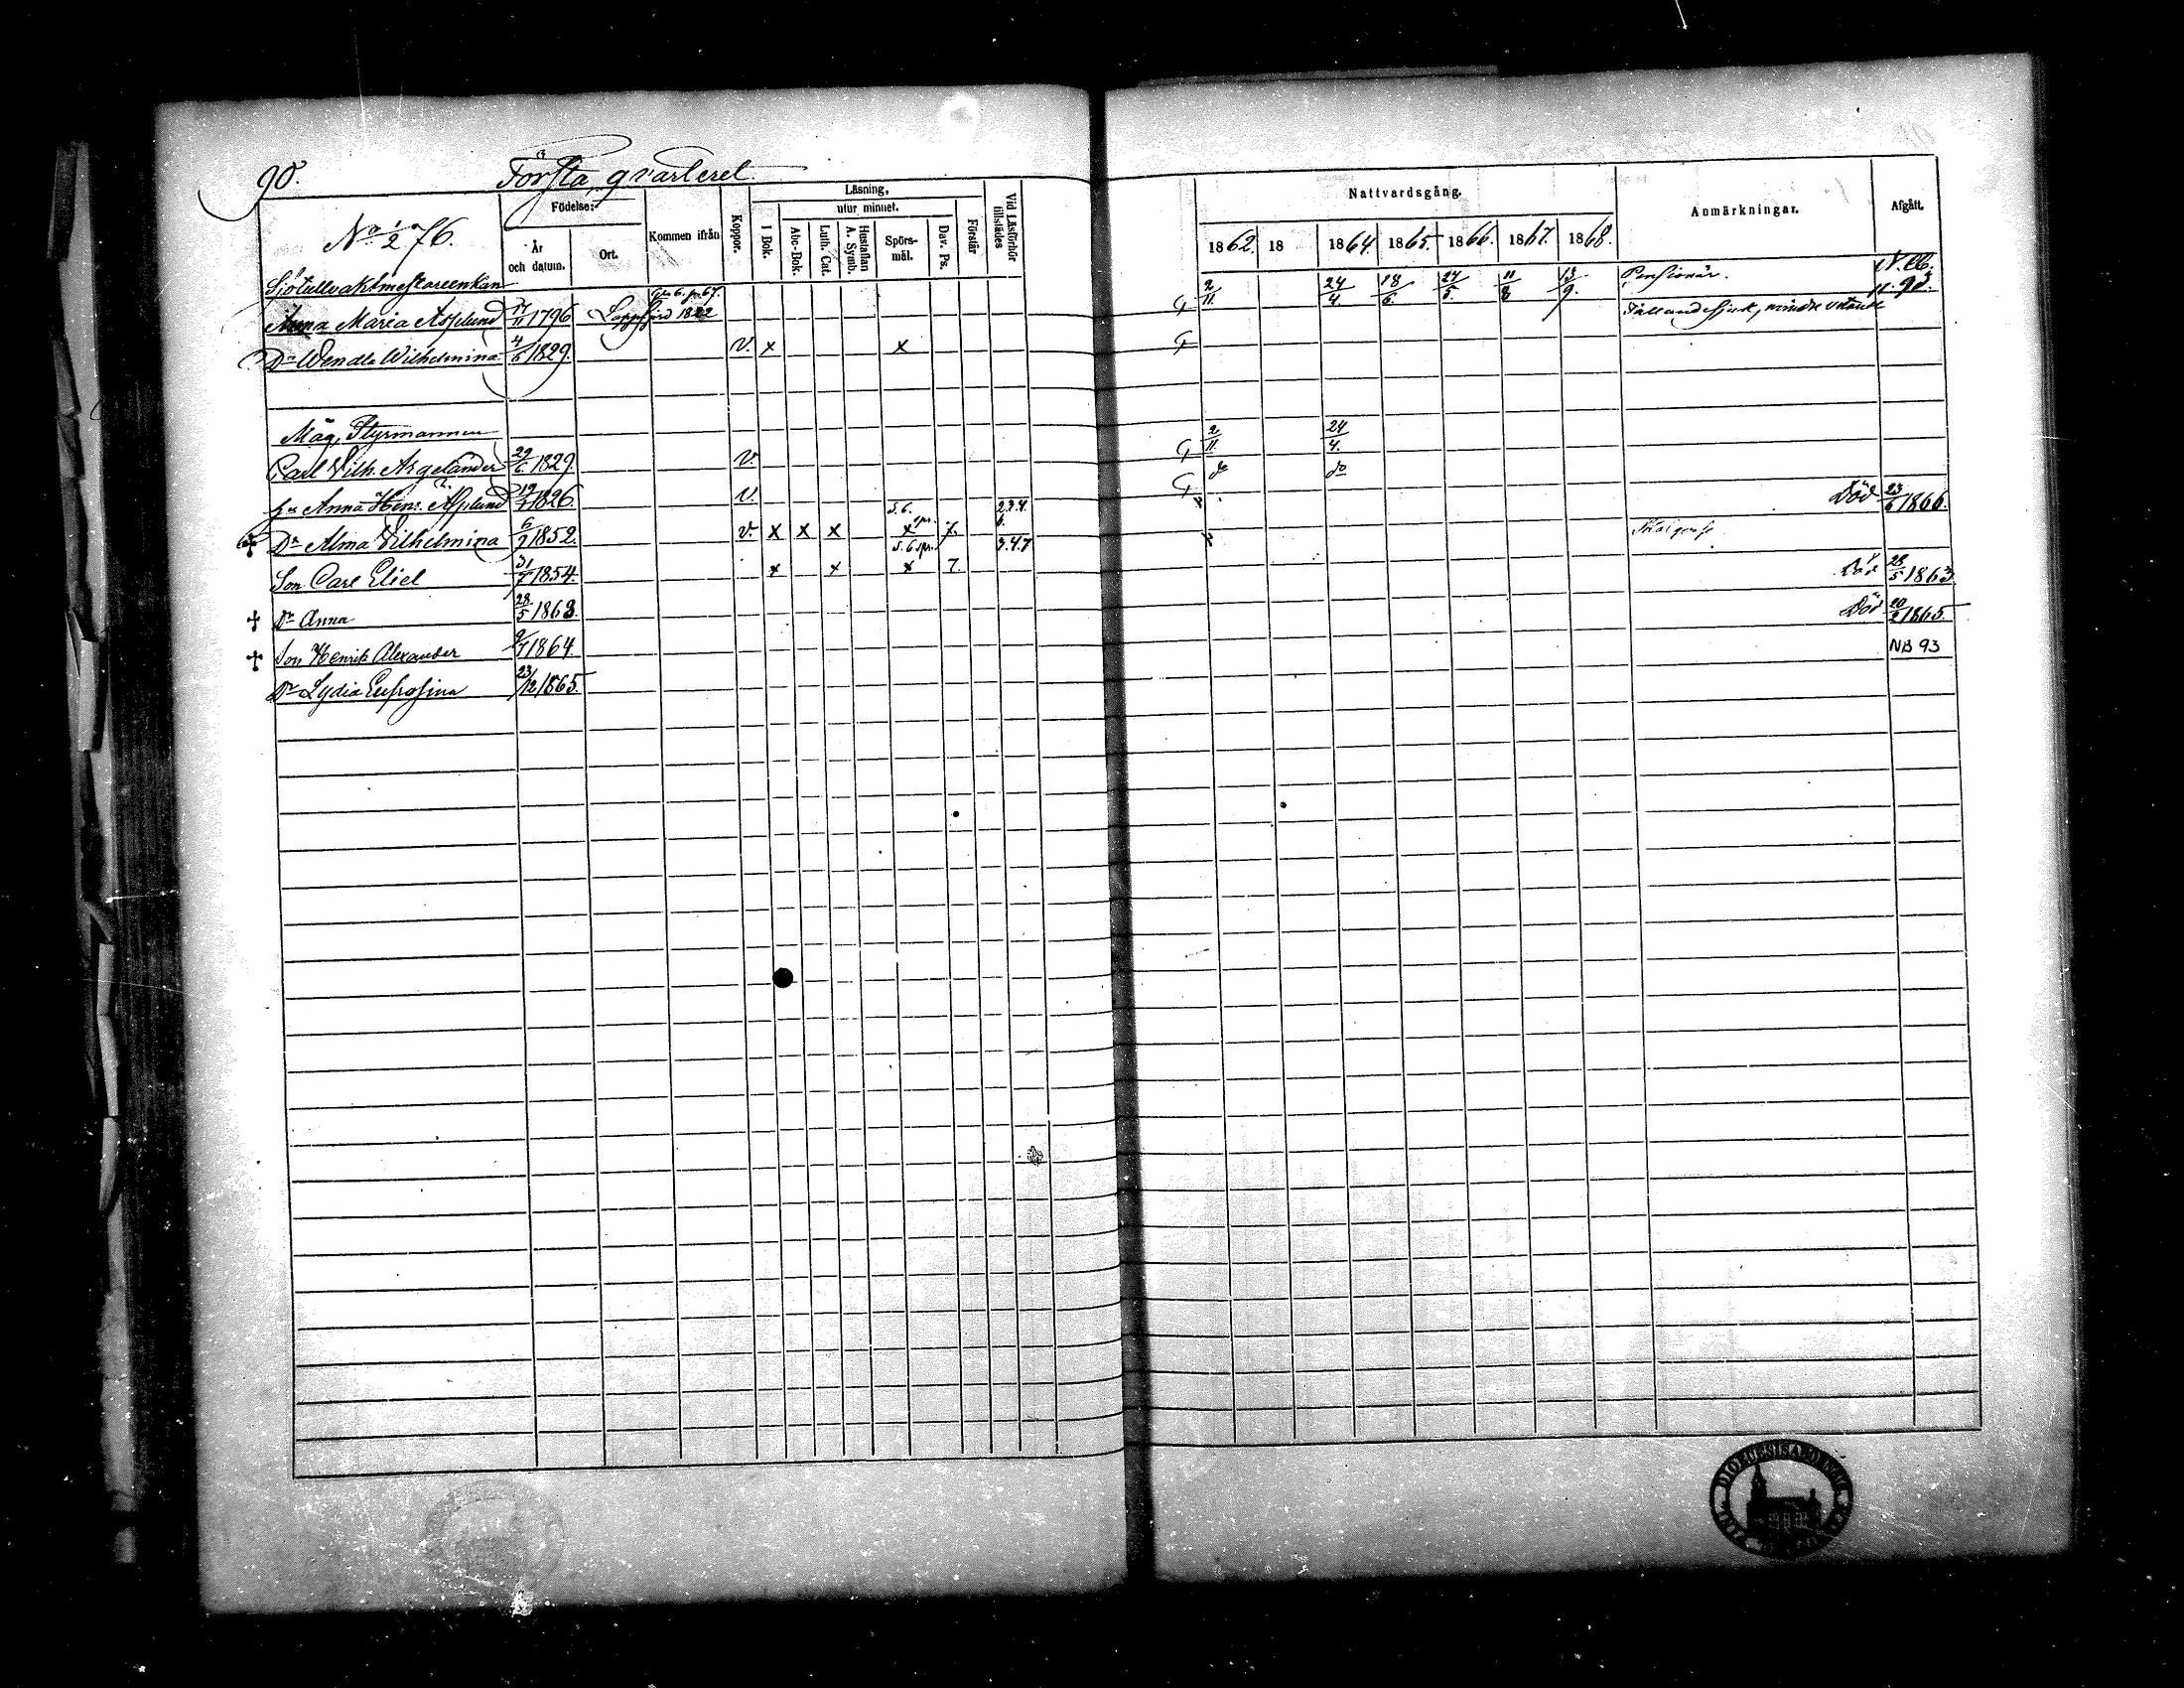 90. Första qvarteret
No 1/2 76.
Födelse:
År och datum.
Ort.
Kommen ifrån
Koppor.
Läsning,
utur minnet.
I Bok.
Abc-Bok.
Luth. Cat.
A. Symb.
Hustaflan
Spörs-mål.
Dav. Ps.
Förstår
Vid Läsförhör tillstädes
Nattvardsgång.
1862. 18 1864. 1865. 1866. 1867. 1868.
Anmärkningar.
Afgått.
Sjötullvaktmestareenkan 2/11 24/4 18/6 27/5 11/8 13/9. Pensionär.
Anna Maria Asplund 17/11 1796 Lappfjärd 1822 Fallandesjuk, mindre vetande 11. 90.
Dr Wendla Wilhelmina 4/6 1829. V. x x
Måg, Styrmannen 2/11 24/4.
Carl Vilh. Argelander 29/6 1829. V. do do
hu Anna Henr. Asplund 1826. V.
Dr Alma Vilhelmina 6/2 1852. v. x x x x 5.6. 2.3.4. 6. Död 23/6 1866.
Son Carl Eliel 31/7 1854. x x x 7. 5.6 spr. 3.4.7
Dr Anna 28/5 1863. Död 28/5 1863
Son Henrik Alexander 9/7 1864 Död 20/2 1865.
Dr Lydia Eufrosina 23/12 1865. NB 93